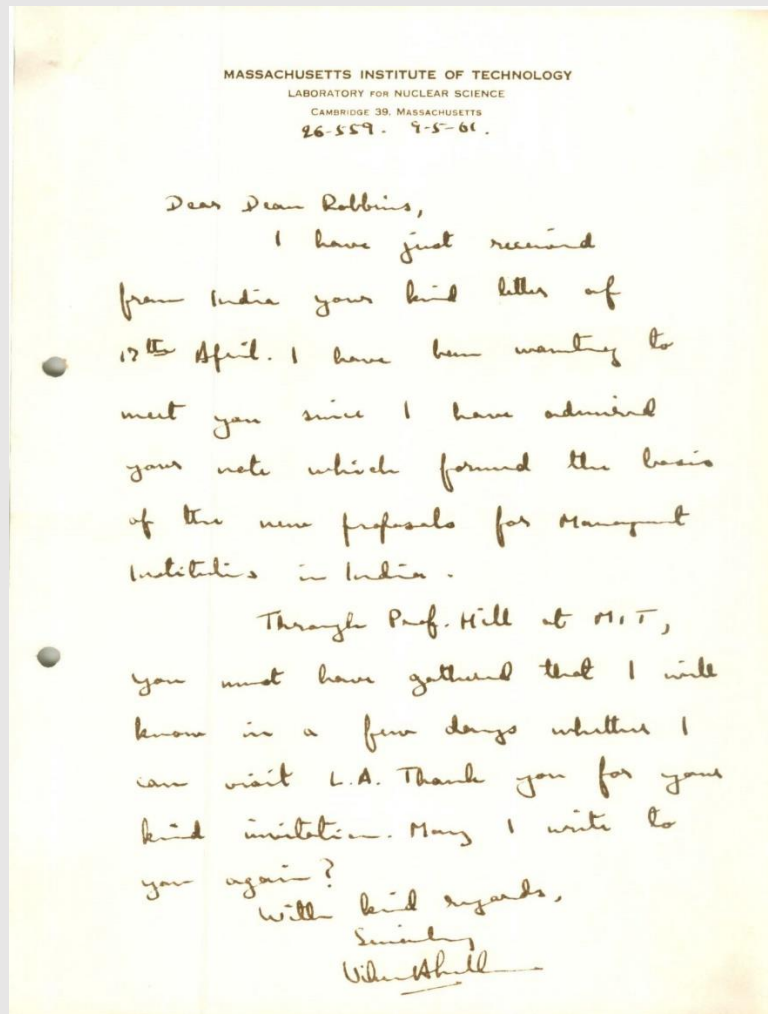 MASSACHUSETTS INSTITUTE OF TECHNOLOGY
LABORATORY FOR NUCLEAR SCIENCE
CAMBRIDGE 39, MASSACHUSETTS
26-559. 9-5-61.
Dear Dean Robbins,
I have just received
from India your kind letter of
17th April. I have been wanting to
meet you since I have admired
your note which formed the basis
of the new proposals for Management
Institutes in India.
Through Prof. Hill at MIT,
you must have gathered that I will
know in a few days whether I
can visit L.A. Thank you for your
kind invitation. May I write to
you again?
With kind regards,
Sincerely